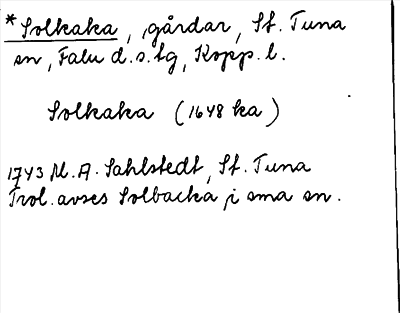 *Solkaka, gårdar, St. Tuna
sn, Falu d.s.tg, Kopp. l.
Solkaka (1648 ka)
1743 M. A. Sahlstedt, St. Tuna
Trol. avses Solbacka i sma sn.